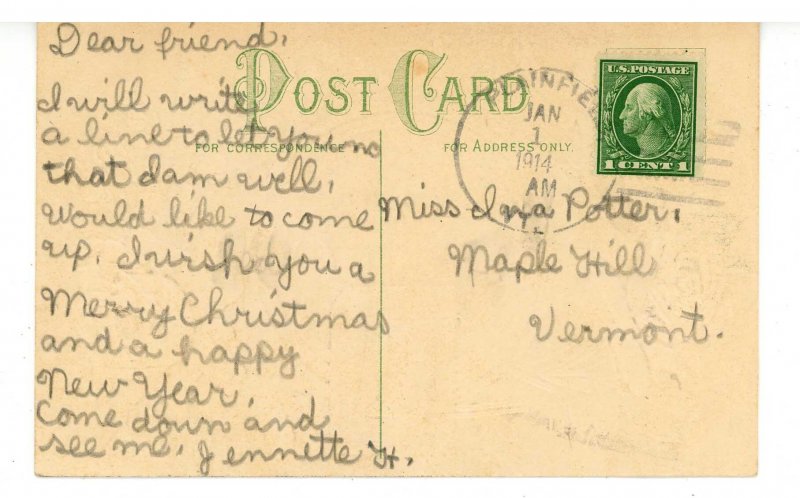 Dear friend,
I will write
a line to let you no
that I am well,
would like to come
up. I wish you a
Merry Christmas
and a happy
New Year,
Come down and
see me, Jennette H.
POST CARD
FOR CORRESPONDENCE
FOR ADDRESS ONLY.
PLAINFIEL
JAN
1
1914
AM
VT.
U.S. POSTAGE
1 CENT 1
Miss Potter,
Maple Hill
Vermont.